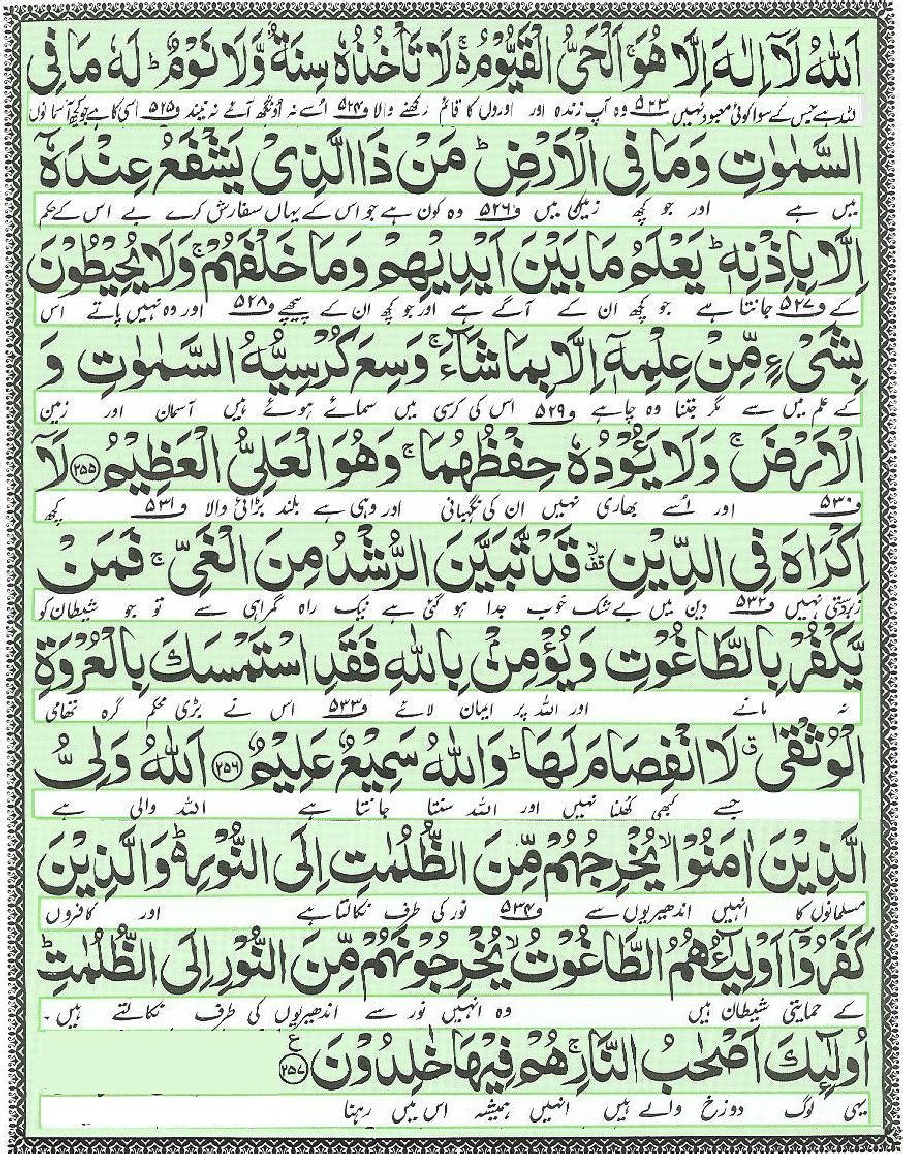 اَللّٰهُ لَاۤ اِلٰهَ اِلَّا هُوَۚ اَلْحَیُّ الْقَیُّوْمُ٥ۚ لَا تَاْخُذُهٗ سِنَةٌ وَّلَا نَوْمٌؕ لَهٗ مَا فِی
اللہ ہے جس کے سوا کوئی معبود نہیں ف۵۲۳ وہ آپ زندہ اور اوروں کا قائم رکھنے والا ف۵۲۴ اسے نہ اونگھ آئے نہ نیند ف۵۲۵ اسی کا ہے جو کچھ آسمانوں
السَّمٰوٰتِ وَمَا فِی الْاَرْضِؕ مَنْ ذَا الَّذِیْ یَشْفَعُ عِنْدَهٗۤ
میں ہے اور جو کچھ زمین میں ف۵۲۶ وہ کون ہے جو اس کے یہاں سفارش کرے بے اس کے حکم
اِلَّا بِاِذْنِهٖؕ یَعْلَمُ مَا بَیْنَ اَیْدِیْهِمْ وَمَا خَلْفَهُمْۚ وَلَا یُحِیْطُوْنَ
کے ف۵۲۷ جانتا ہے جو کچھ ان کے آگے ہے اور جو کچھ ان کے پیچھے ف۵۲۸ اور وہ نہیں پاتے اس
بِشَیْءٍ مِّنْ عِلْمِهٖۤ اِلَّا بِمَا شَآءَۚ وَسِعَ كُرْسِیُّهُ السَّمٰوٰتِ وَ
کے علم میں سے مگر جتنا وہ چاہے ف۵۲۹ اس کی کرسی میں سمائے ہوئے ہیں آسمان اور زمین
الْاَرْضَۚ وَلَا یَـُٔوْدُهٗ حِفْظُهُمَاۚ وَهُوَ الْعَلِیُّ الْعَظِیْمُ ﴿۲۵۵﴾ لَاۤ
ف۵۳۰ اور اسے بھاری نہیں ان کی نگہبانی اور وہی ہے بلند بڑائی والا ف۵۳۱ کچھ
اِكْرَاهَ فِی الدِّیْنِ قف لا قَدْ تَّبَیَّنَ الرُّشْدُ مِنَ الْغَیِّۚ فَمَنْ
زبردستی نہیں ف۵۳۲ دین میں بے شک خوب جدا ہو گئی ہے نیک راہ گمراہی سے تو جو شیطان کو
یَّكْفُرْ بِالطَّاغُوْتِ وَیُؤْمِنْۢ بِاللّٰهِ فَقَدِ اسْتَمْسَكَ بِالْعُرْوَةِ
نہ مانے اور اللہ پر ایمان لائے ف۵۳۳ اس نے بڑی محکم گرہ تھامی
الْوُثْقٰیۗ لَا انْفِصَامَ لَهَاؕ وَاللّٰهُ سَمِیْعٌ عَلِیْمٌ ﴿۲۵۶﴾ اَللّٰهُ وَلِیُّ
جسے کبھی کھلنا نہیں اور اللہ سنتا جانتا ہے اللہ والی ہے
الَّذِیْنَ اٰمَنُوْاۙ یُخْرِجُهُمْ مِّنَ الظُّلُمٰتِ اِلَی النُّوْرِ٥ؕ وَالَّذِیْنَ
مسلمانوں کا انہیں اندھیریوں سے ف۵۳۴ نور کی طرف نکالتا ہے اور کافروں
كَفَرُوْۤا اَوْلِیٰٓـُٔهُمُ الطَّاغُوْتُۙ یُخْرِجُوْنَهُمْ مِّنَ النُّوْرِ اِلَی الظُّلُمٰتِؕ
کے حمایتی شیطان ہیں وہ انہیں نور سے اندھیریوں کی طرف نکالتے ہیں۔
اُولٰٓئِكَ اَصْحٰبُ النَّارِۚ هُمْ فِیْهَا خٰلِدُوْنَ ﴿۲۵۷﴾ ع
یہی لوگ دوزخ والے ہیں انہیں ہمیشہ اس میں رہنا